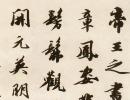 帝王之書
章鳳姿
髣髴觀
開元英明